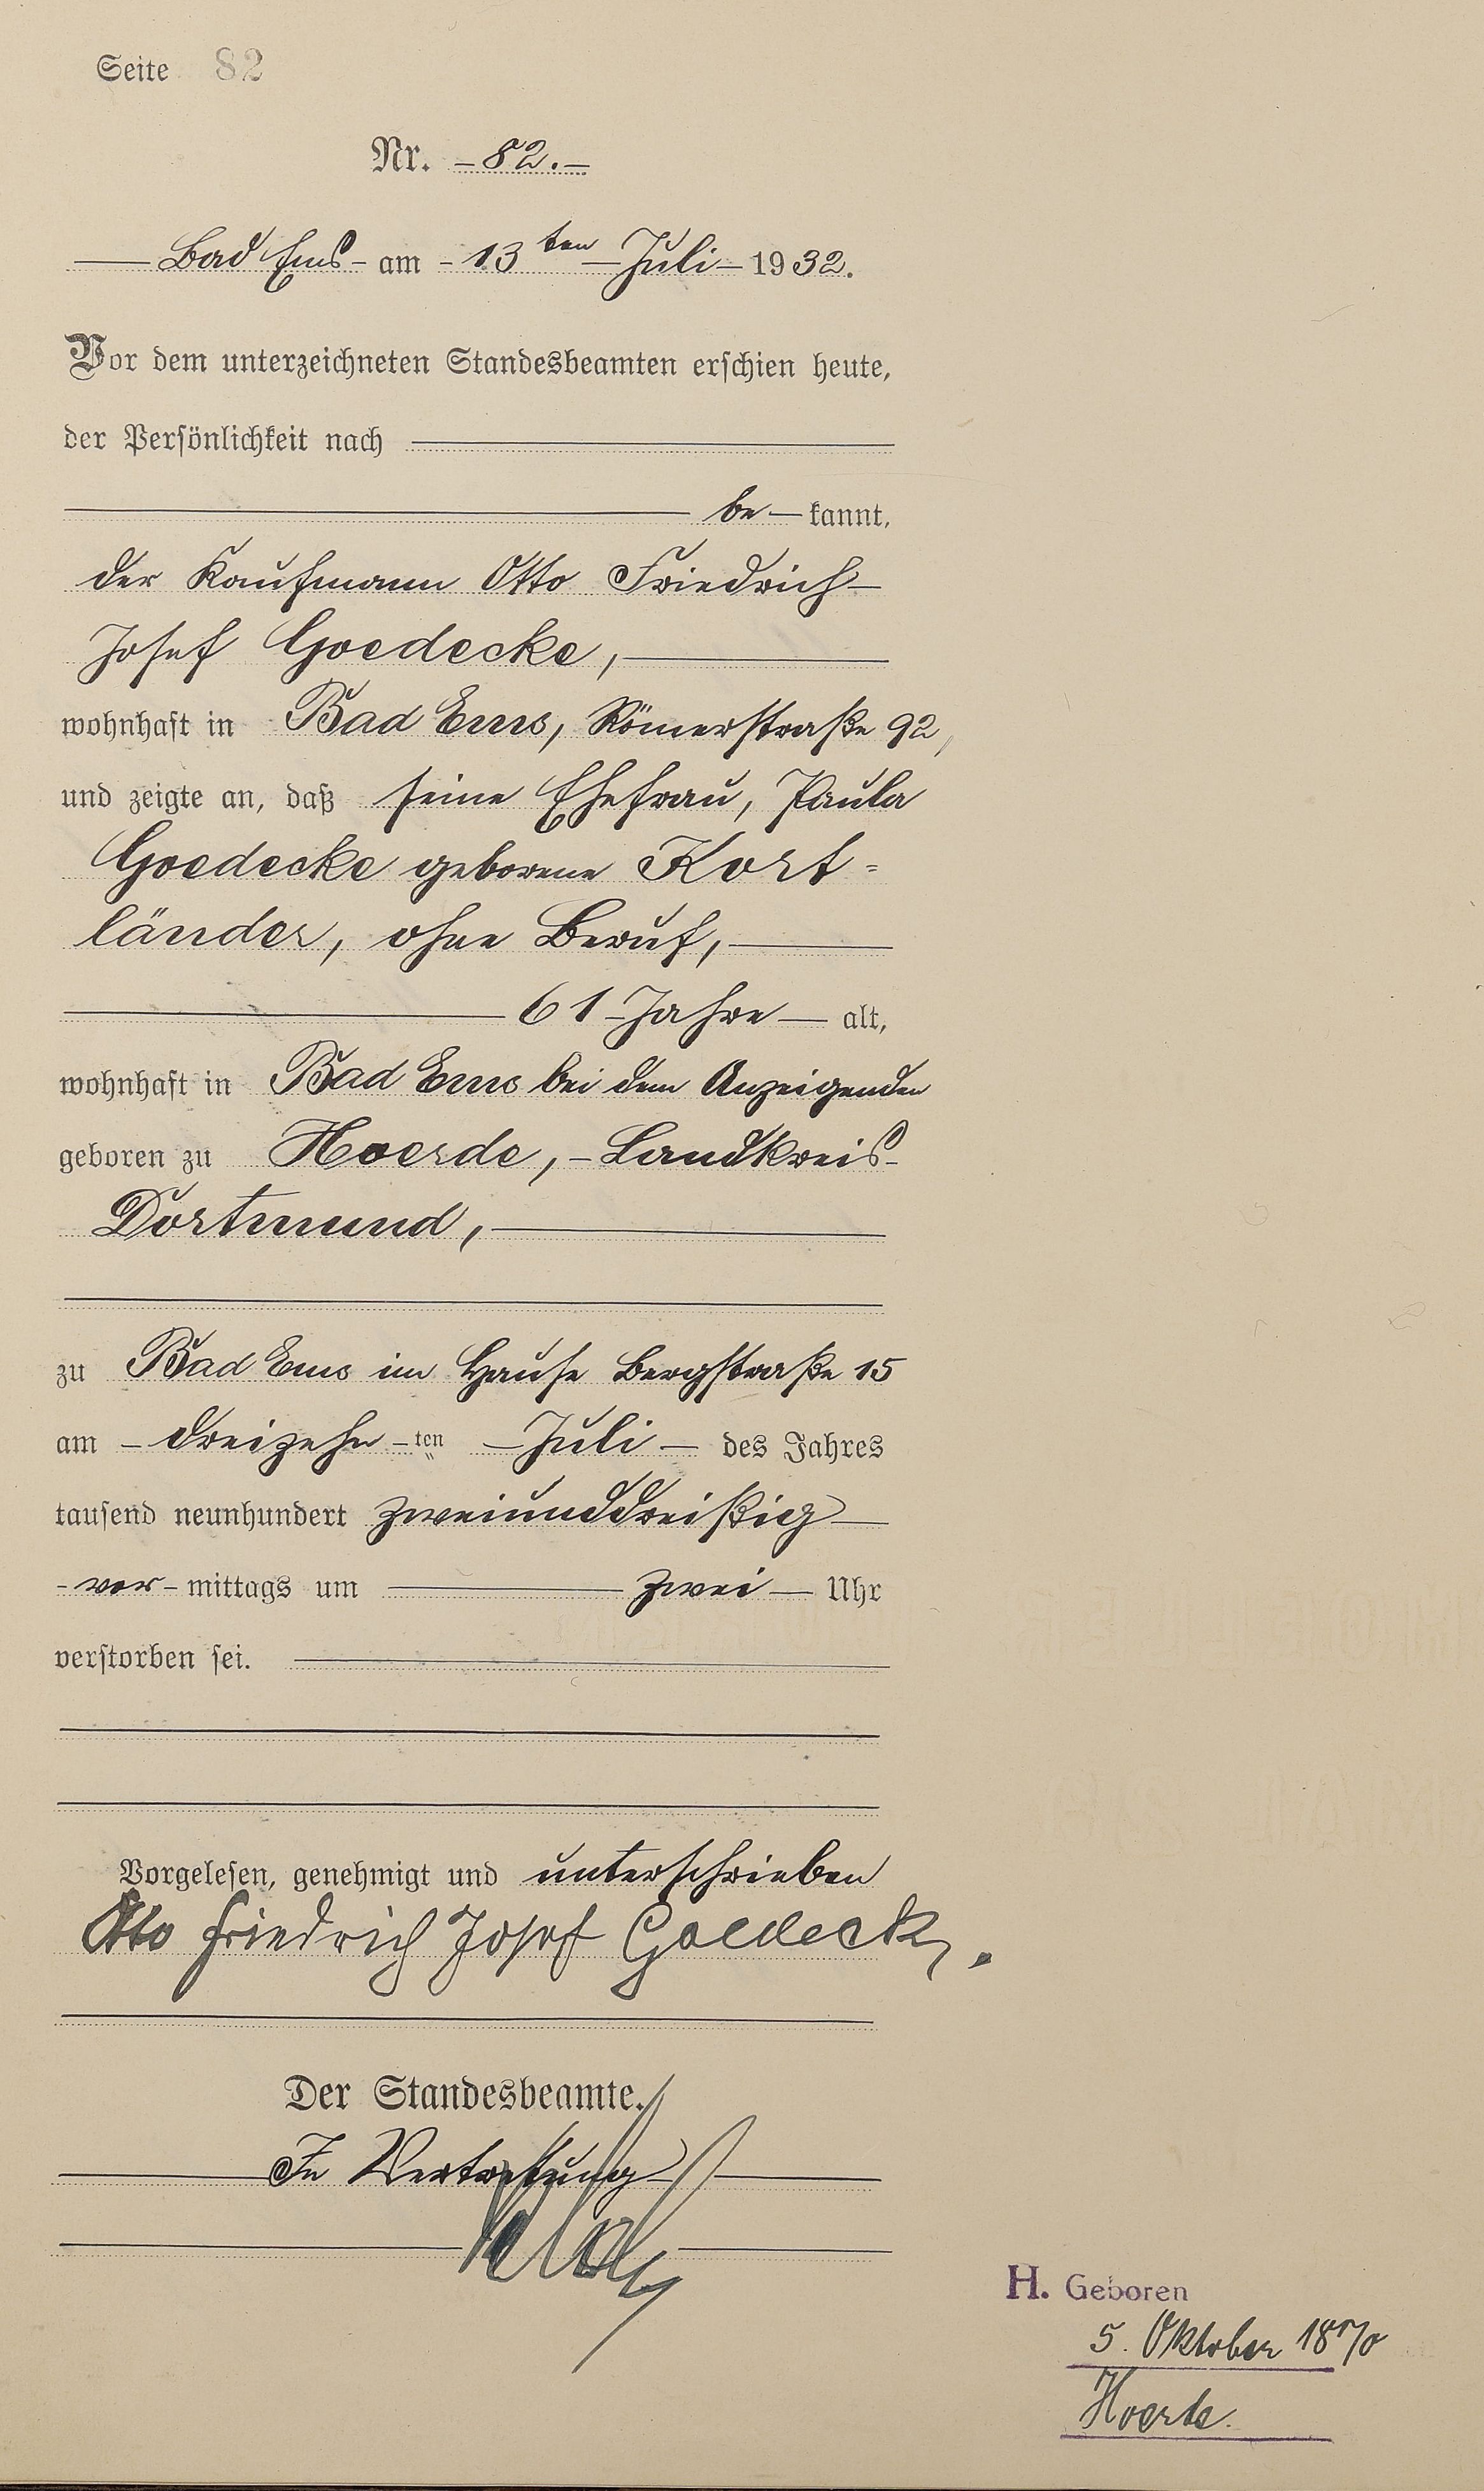 Seite 82
Nr. – 82. –
Bad Ems – am – 13ten – Juli – 1932.
Vor dem unterzeichneten Standesbeamten erschien heute,
der Persönlichkeit nach
be – kannt,
der Kaufmann Otto Friedrich –
Josef Goedecke,
wohnhaft in Bad Ems, Römerstraße 92,
und zeigte an, daß seine Ehefrau, Paula
Goedecke geborene Kort=
länder, ohne Beruf,
61 – Jahre – alt,
wohnhaft in Bad Ems bei dem Anzeigenden
geboren zu Hoerde, – Landkreis –
Dortmund,
zu Bad Ems im Hause Bergstraße 15
am – dreizehn – ten – Juli – des Jahres
tausend neunhundert zweiunddreißig
– vor – mittags um zwei – Uhr
verstorben sei.
Vorgelesen, genehmigt und unterschrieben
Otto Friedrich Josef Goedecke.
Der Standesbeamte.
In Vertretung
H. Geboren
5. Oktober 1870
Hoerde.